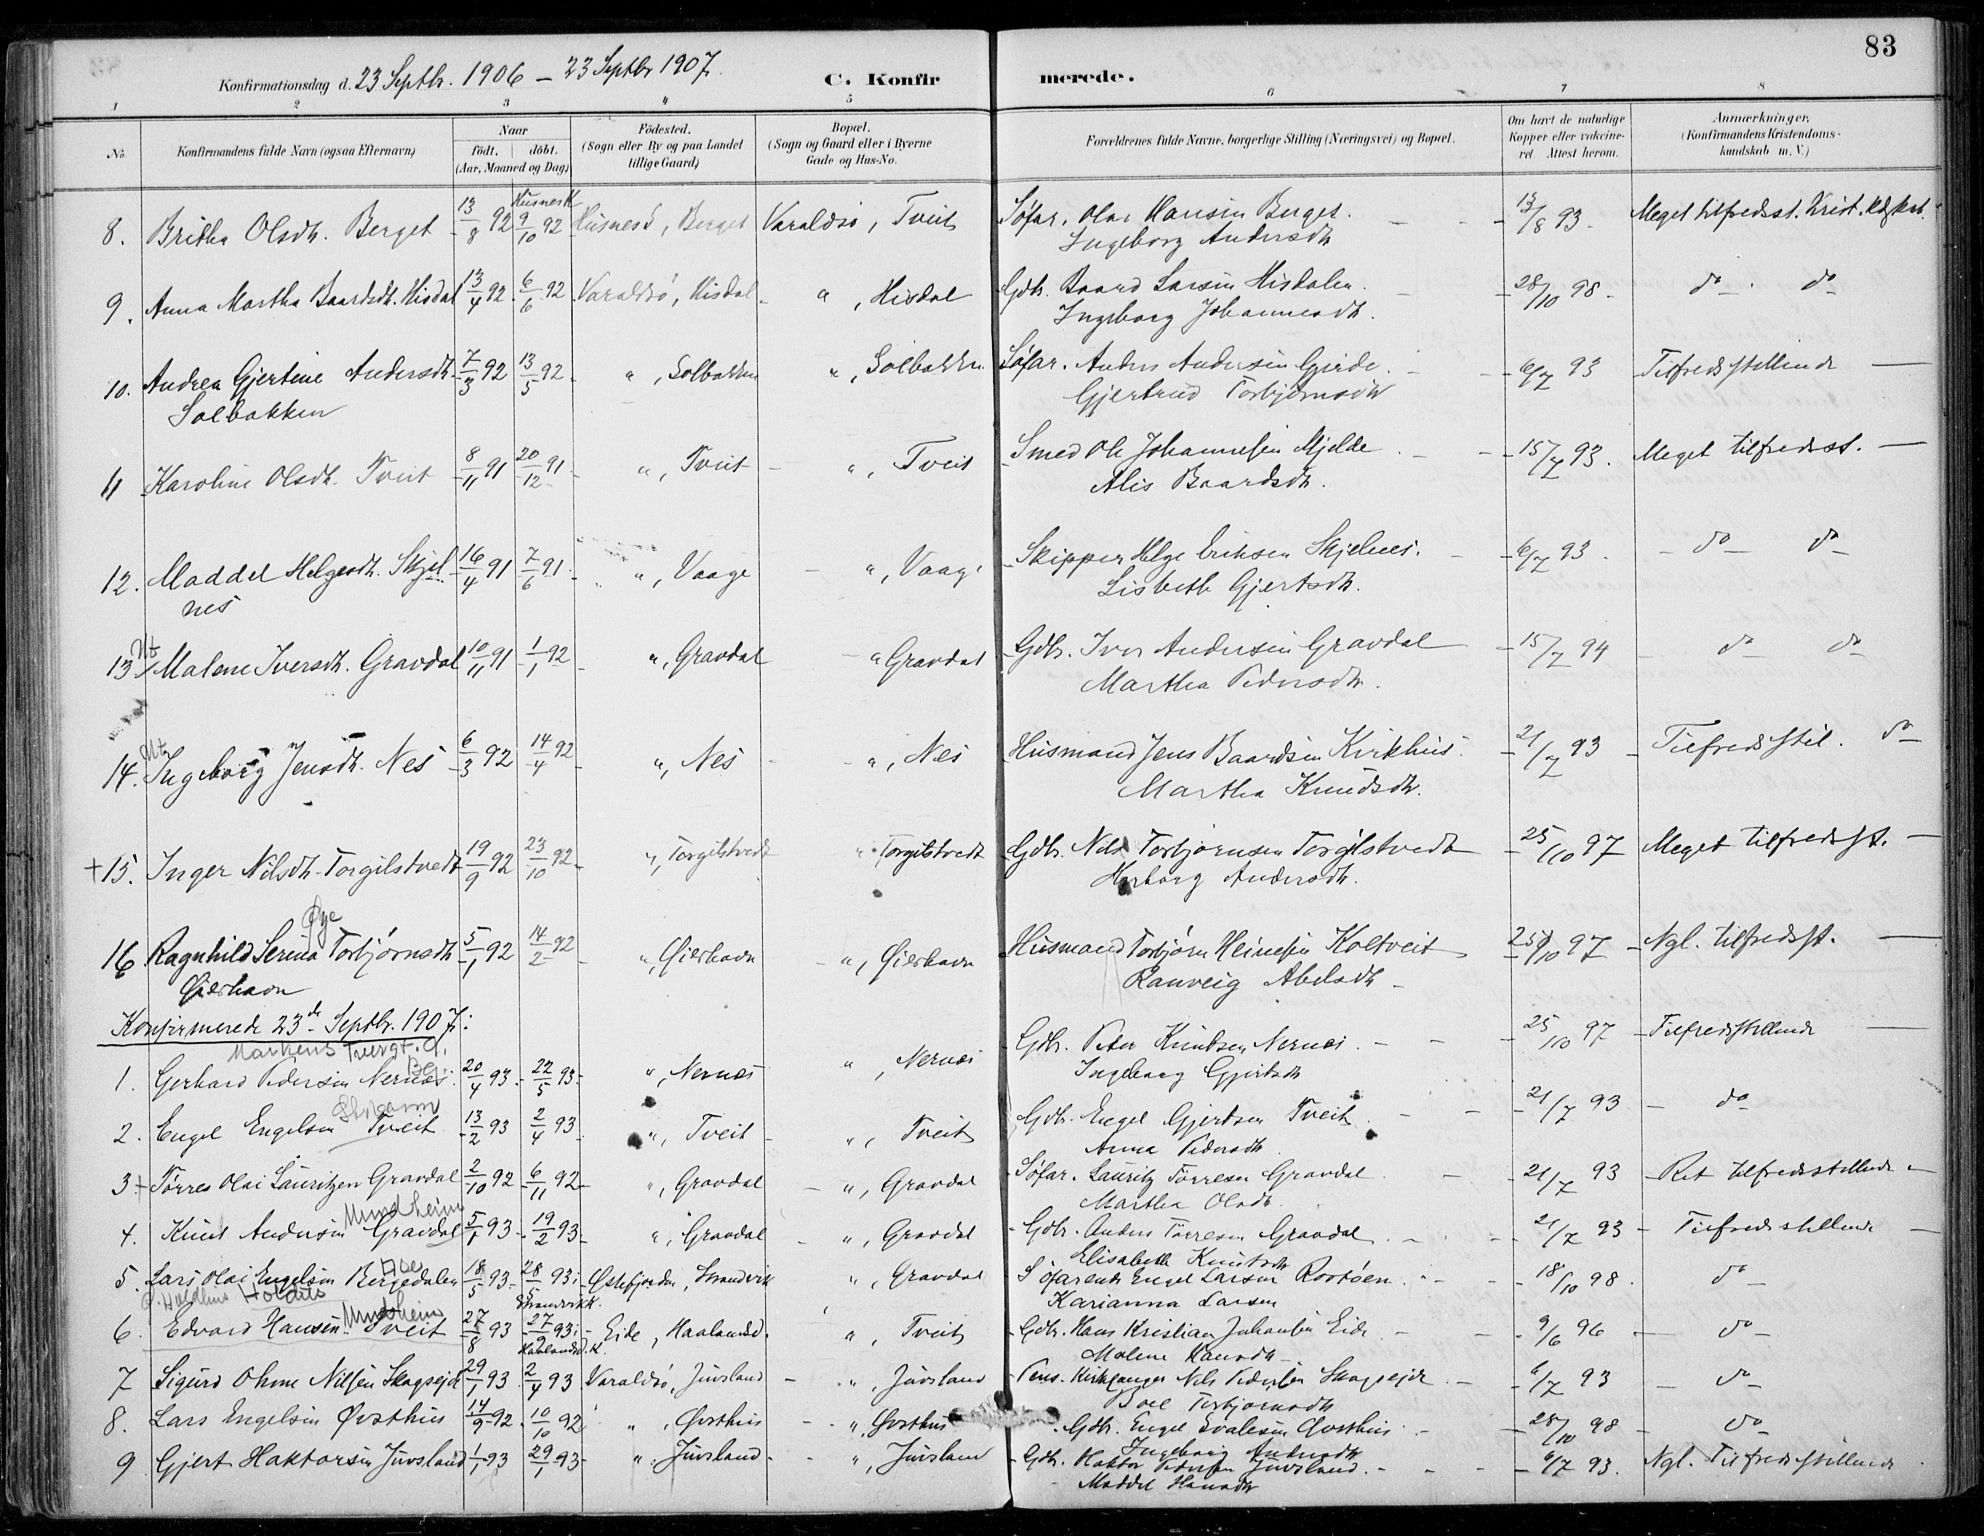 83
Konfirmationsdag d. 23 Septbr. 1906 – 23 Septbr 1907.
C. Konfirmerede.
1 2 3 4 5 6 7 8
No. Konfirmandens fulde Navn (ogsaa Efternavn) Naar født, døbt. (Aar, Maaned og Dag) Födested. (Sogn eller By og paa Landet tillige Gaard) Bopæl. (Sogn og Gaard eller i Byerne Gade og Hus-No. Forældrenes fulde Navne, borgerlige Stilling (Næringsvei) og Bopæl. Om havt de naturlige Kopper eller vakcineret Attest herom. Anmærkninger. (Konfirmandens Kristendomskundskab m. V.)
8. Britha Olsdtr. Berget 13/8 92 Husnes K 9/10 92 Husnes, Berget Varaldsö, Tveit Søfar. Olai Hansen Berget. 13/8 93 Meget tilfredsst.
Ingeborg Andersdtr
9. Anna Martha Baardsdt. Hisdal 13/4 92 6/6 92 Varaldsö, Hisdal " , Hisdal Gdbr. Baard Larsen Hisdalen. 28/10 98 do do
Ingeborg Johannesdtr.
10. Andrea Gjertine Andersdtr. 7/3 92 13/5 92 " , Solbakken " , Solbakken Søfar. Anders Andersen Gjerde. 6/7 93 Tilfredsstillende
Solbakken Gjertrud Torbjørnsdtr
11 Karoline Olsdtr. Tveit 8/11 91 20/12 91 " , Tveit " , Tveit Smed Ole Johannesen Mjelde 15/7 93. Meget tilfredsst.
Alis Baardsdtr.
12. Maddel Helgesdtr. Skjel 16/4 91 7/6 91 " , Vaage " , Vaage Skipper Helge Eriksen Skjelnes. 6/7 93. do do
nes Lisbeth Gjertsdtr.
13 Malene Iversdtr. Gravdal 10/11 91 1/1 92 " , Gravdal " Gravdal Gdbr. Iver Andersen Gravdal 15/7 94 do do
Martha Pedersdtr.
14. Ingeborg Jensdtr. Nes 6/3 92 14/4 92 " , Nes " , Nes Husmand Jens Baardsen Kirkhus. 21/7 93 Tilfredsstil. do
Martha Knudsdtr.
+15. Inger Nilsdtr. Torgilstvedt 19/9 92 23/10 92 " , Torgilstvedt " Torgilstvedt Gdbr. Nils Torbjørnsen Torgilstvedt 25/10 97 Meget tilfredsst.
Herborg Andersdtr.
Øye
16 Ragnhild Serina Torbjørnsdtr 5/1 92 14/2 92 " , Øierhavn " , Øierhavn Husmand Torbjørn Heinesen Koltveit 25/10 97 Ngl. tilfredsst.
Øierhavn Ranveig Abelsdtr
Konfirmerede 23de Septbr. 1907:
1. Gerhard Pedersen Nernæs. 20/4 93 22/5 93 " , Nernæs " , Nernæs Gdbr. Peter Knudsen Nernæs. 25/10 97 Tilfredsstillende
Ingeborg Gjertsdtr
2. Engel Engelsen Tveit 13/2 93 2/4 93 " , Tveit " , Tveit Gdbr. Engel Gjertsen Tveit 21/7 93 do
Anna Pedersdtr.
3 Tørres Olai Lauritzen Gravdal 2/10 92 6/11 92 " , Gravdal " , Gravdal Søfar. Lauritz Tørresen Gravdal 21/7 93 Ret tilfredsstillende
Martha Olsdtr.
Mundheim
4. Knut Andersen Gravdal 5/1 93 19/2 93 " , Gravdal " , Gravdal Gdbr. Anders Tørresen Gravdal 21/7 93 Tilfredsstillende
Elisabeth Knutsdtr
5. Lars Olai Engelsen Bergedalen 18/5 93 28/5 93 Østefjorden, Strandvik " , Gravdal Søfarende Engel Larsen Rostøen. 18/10 98. do
Holdhus Strandvik K. Karianna Larsen
Mundheim
6. Edvard Hansen Tveit 27/8 93 27/9 93 Eide, Haalandsd. " , Tveit Gdbr. Hans Kristian Johansen Eide 9/6 96 do
Haalandsd. K. Malene Hansdtr
7 Sigurd Ohme Nilsen Skogseide 29/1 93 2/4 93 Varaldsö, Juvsland " , Juvsland Pens. Kirkesanger Nils Pedersen Skogseide 6/7 93 do
Boel Torbjørnsdtr
8. Lars Engelsen Øvsthus 14/9 92 10/10 92 " , Øvsthus " , Øvsthus Gdbr. Engel Svalesen Øvsthus 28/10 98 do
Ingeborg Andersdtr
9 Gjert Haktorsen Juvsland 1/1 93 29/1 93 " , Juvsland " , Juvsland Gdbr. Haktor Pedersen Juvsland. 6/7 93. Ngl. Tilfredsstillende
Maddel Hansdtr